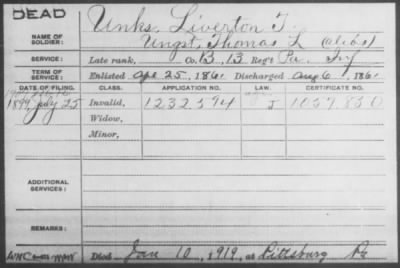 DEAD
Unks, Liverton T.
NAME OF SOLDIER: Ungst, Thomas L (alias)
SERVICE: Late rank, Co. B, 13 Reg't Pa. Inf
TERM OF SERVICE: Enlisted Apr 25, 1861 Discharged Aug 6, 1861
DATE OF FILING. CLASS. APPLICATION NO. LAW. CERTIFICATE NO.
1899, July 25 Invalid, 1232594 J 1037830
Widow,
Minor,
ADDITIONAL SERVICES:
REMARKS:
Died Jan 10, 1919, at Pittsburg Pa